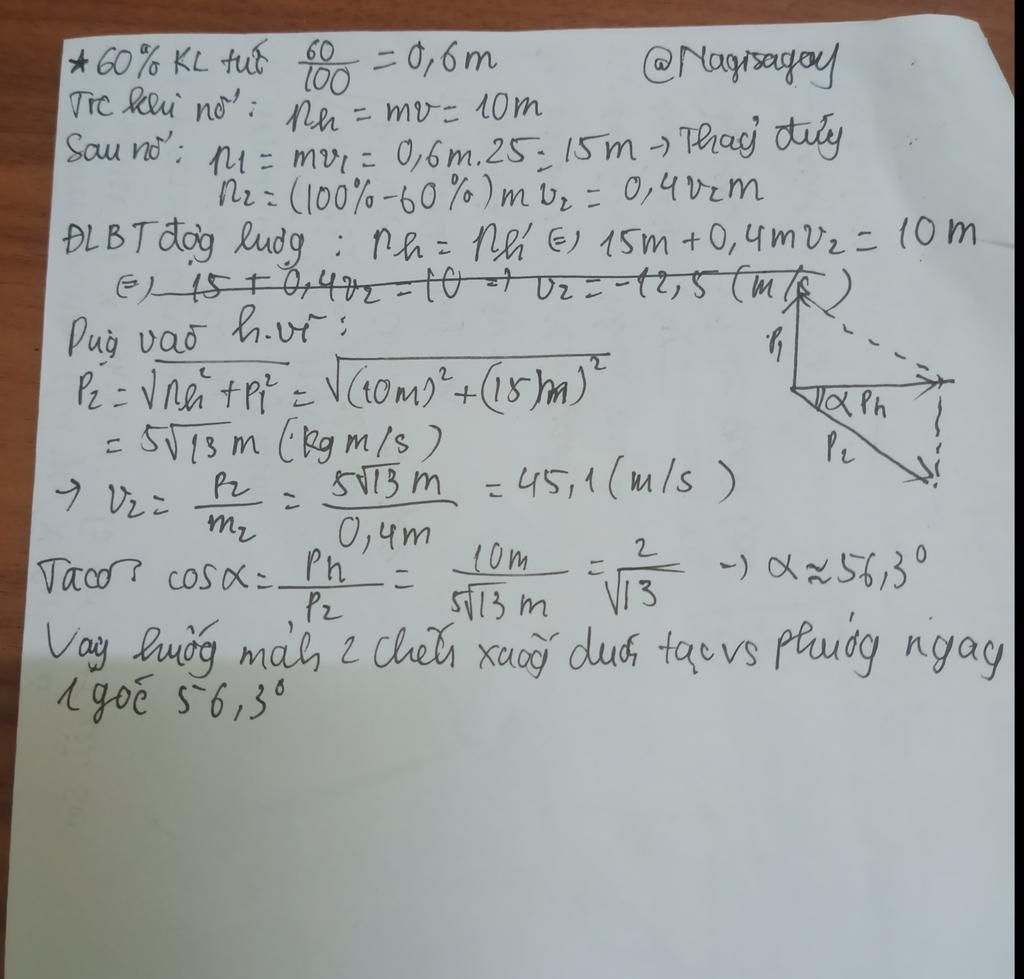 ★ 60% KL tức 60/100 = 0,6m
@Nagisagay
Trc khi nổ: Ph = mv = 10m
Sau nổ: P1 = mv1 = 0,6m.25 = 15m → Thag đứg
P2 = (100%-60%) m v2 = 0,4v2m
ĐLBT độg lượg: Ph = Ph' (=) 15m + 0,4mv2 = 10m
(=) 15 + 0,4v2 = 10 => v2 = -12,5 (m/s)
Dựg vào h.vẽ:
P2 = √Ph² + P1² = √(10m)² + (15)m)²
= 5√13 m (kg m/s)
→ v2 = P2/m2 = 5√13 m/0,4m = 45,1 (m/s)
Ta có: cosα = Ph/P2 = 10m/5√13 m = 2/√13 → α ≈ 56,3°
Vậy hướg mảh 2 chếch xuốg dưới tạo vs phươg ngag
1 góc 56,3°
P1
α Ph
P2